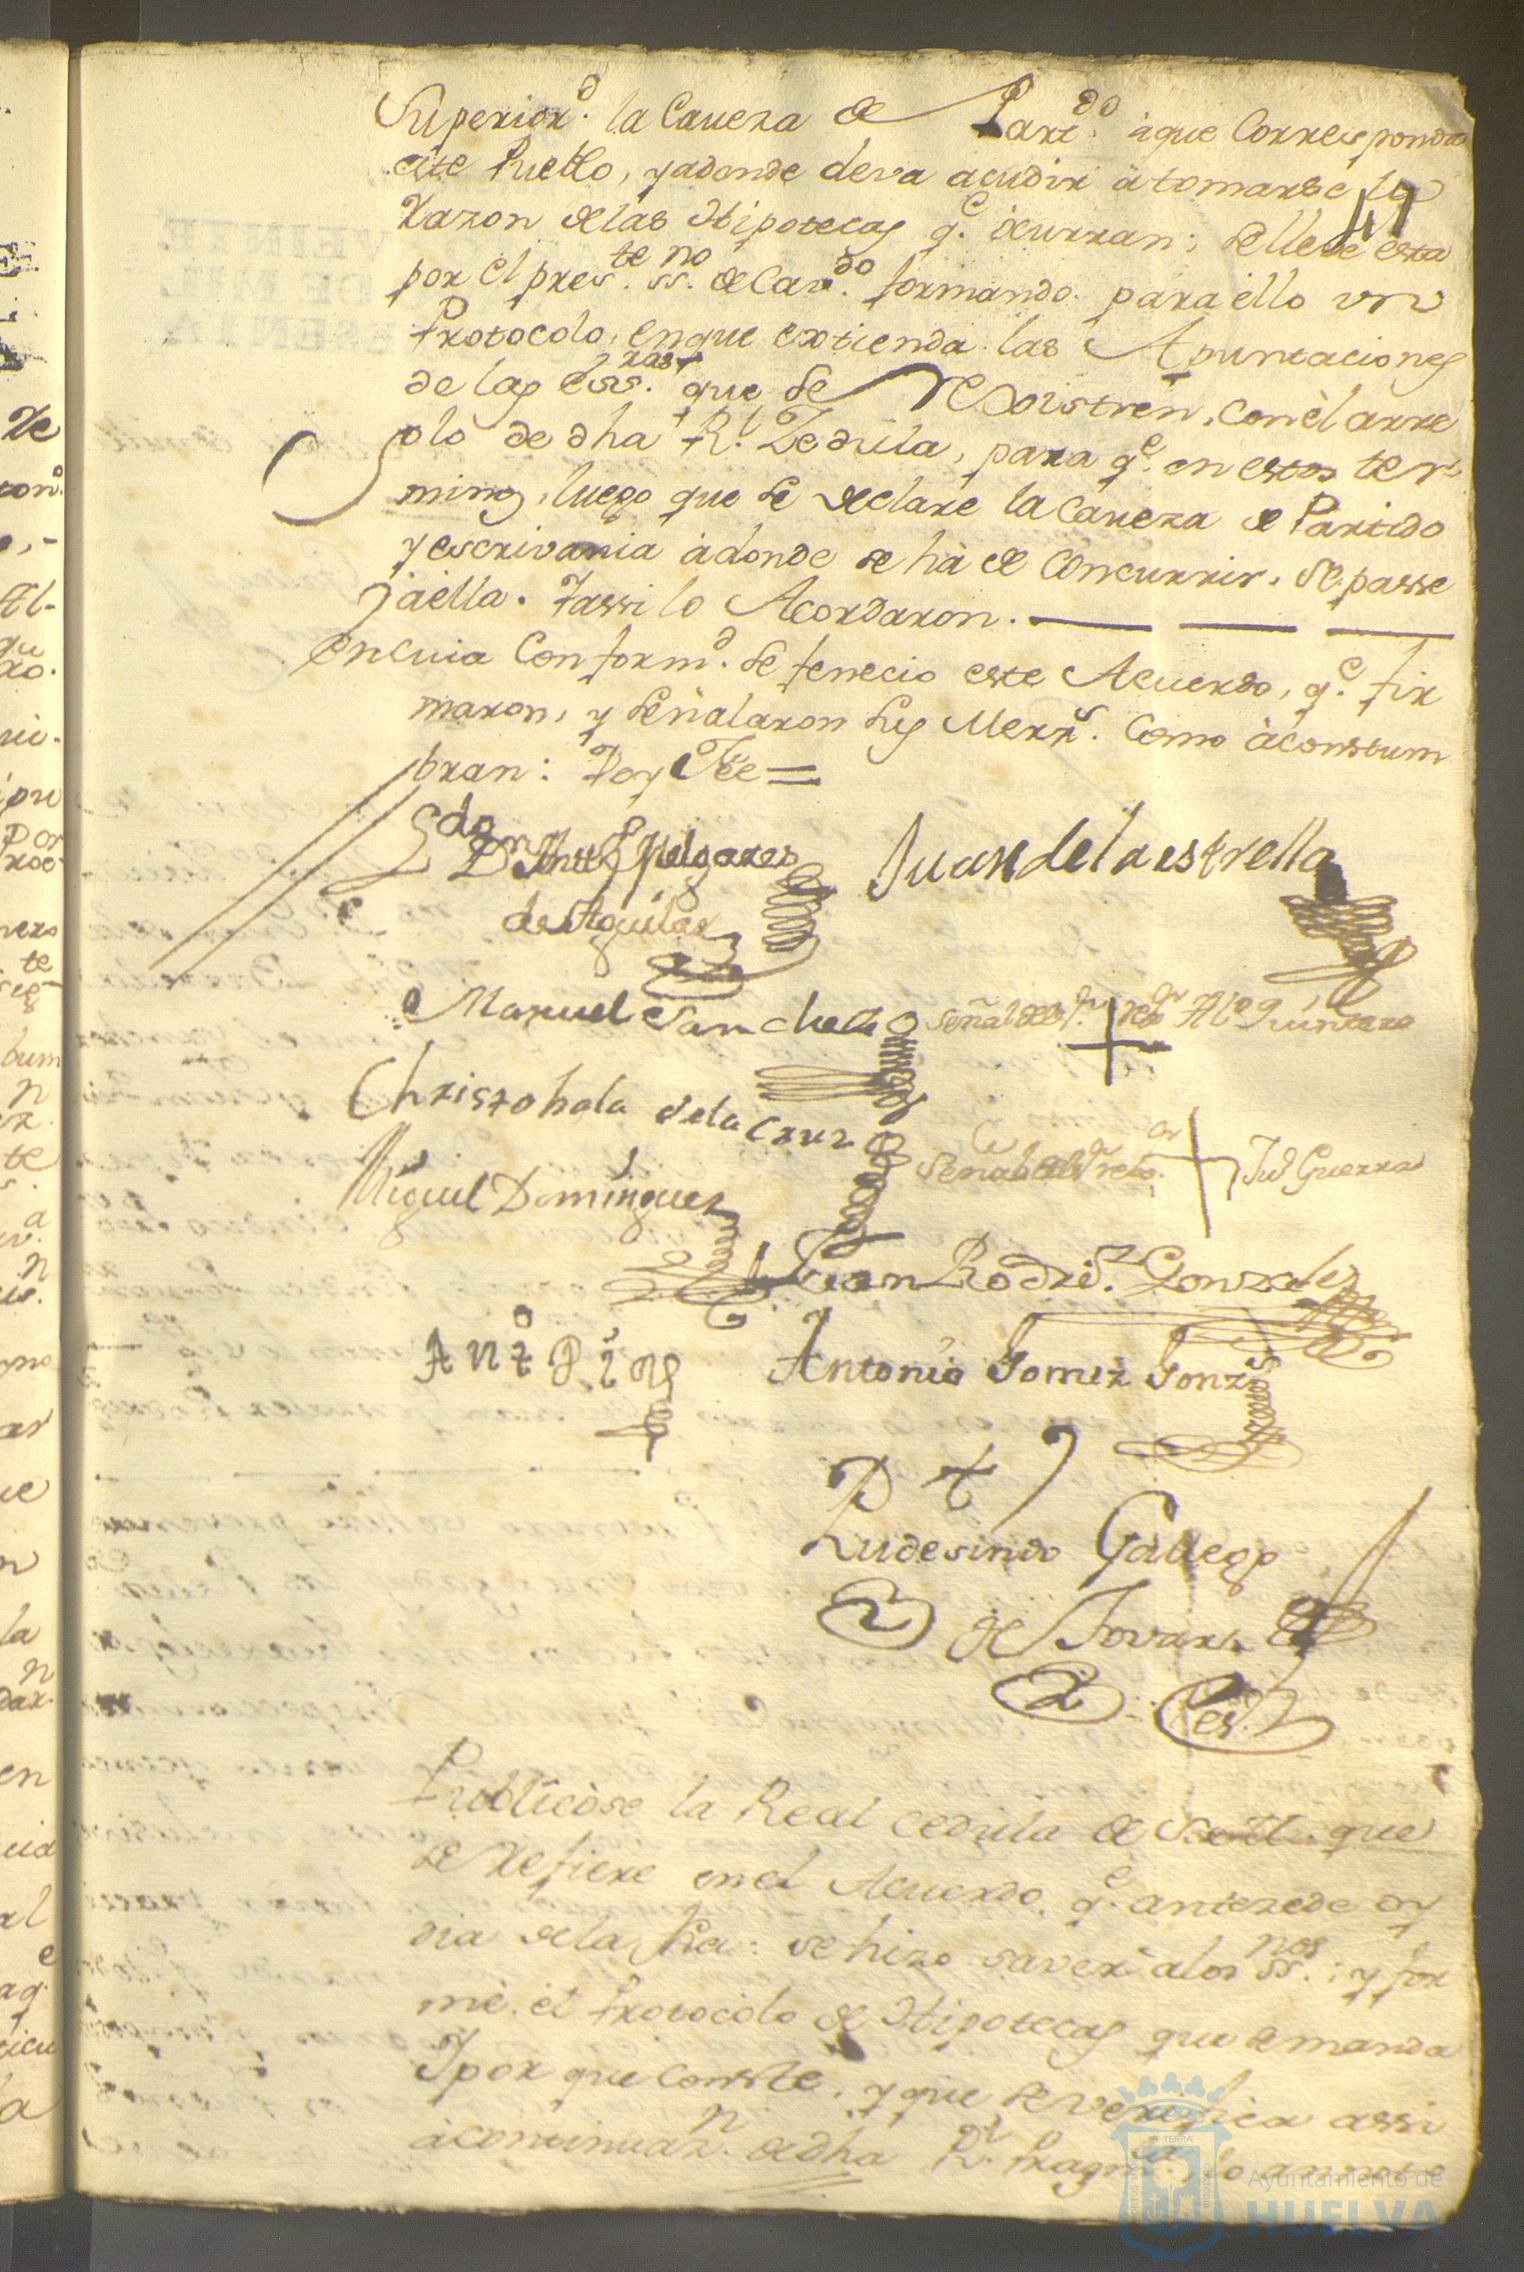 Superior.d la Caveza de Part.do àque Corresponda
este Pueblo, y adonde deva acudir à tomarse la
41
Razon de las Hipotecas q.e òcurran; se lleve esta
por el pres.te ss.no de Cav.do formando para ello un
Protocolo, en que extienda las Apuntaciones
de las ess.ras que se Rexistren, con èl arre
glo de dha R.l Zedula, para q.e en estos ter
minos, luego que se declare la Caveza de Partido
y escrivania àdonde se hà de Concurrir, se passe
àella. Yassi lo Acordaron.
En cuia Conform.d se fenecio este Acuerdo, q.e fir
maron, y señalaron sus Merz.s Como àcostum
bran: Doy Fee =
Ldo Dn Pulgares
de Aguilar
Juan de la estrella
Manuel Sanchez
señal del Rexor Alo Quintero
Christobal de la Cruz
Señal del Rexor Jud Guerra
Miguel Dominguez
Juan Rodrig.z Gonzales
Anto Pinz
Antonio Gomez Gonz.s
Rudesindo Gallego
de Tovar
es.
Publicòse la Real Cedula de S. M. que
se Refiere en el Acuerdo, q.e antezede oy
dia de la fha: se hizo saver à los ss.nos; y for
mè el Protocolo de Hipotecas que se manda
Y por que Conste, y que se verifica assi
àcontinuaz.n de dha R.l Pragm.ca lo anoto
Ayuntamiento de
HUELVA